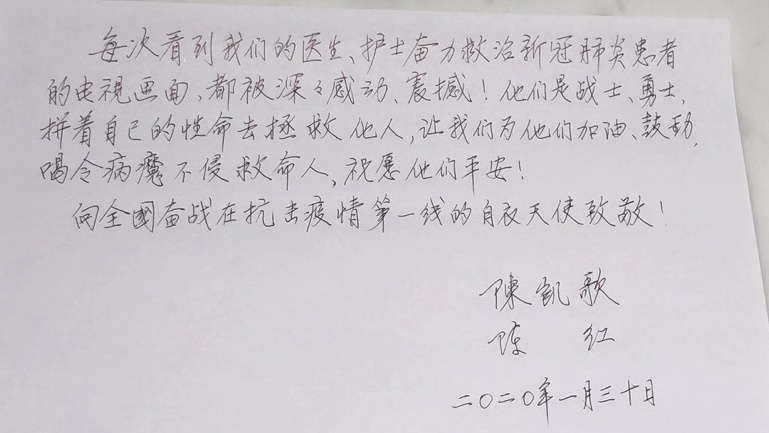 每次看到我们的医生、护士奋力救治新冠肺炎患者
的电视画面,都被深々感动、震撼!他们是战士、勇士,
拼着自己的性命去拯救他人,让我们为他们加油、鼓劲,
喝令病魔不侵救命人,祝愿他们平安!
向全國奋战在抗击疫情第一线的白衣天使致敬!
陳凯歌
陈 红
二〇二〇年一月三十日